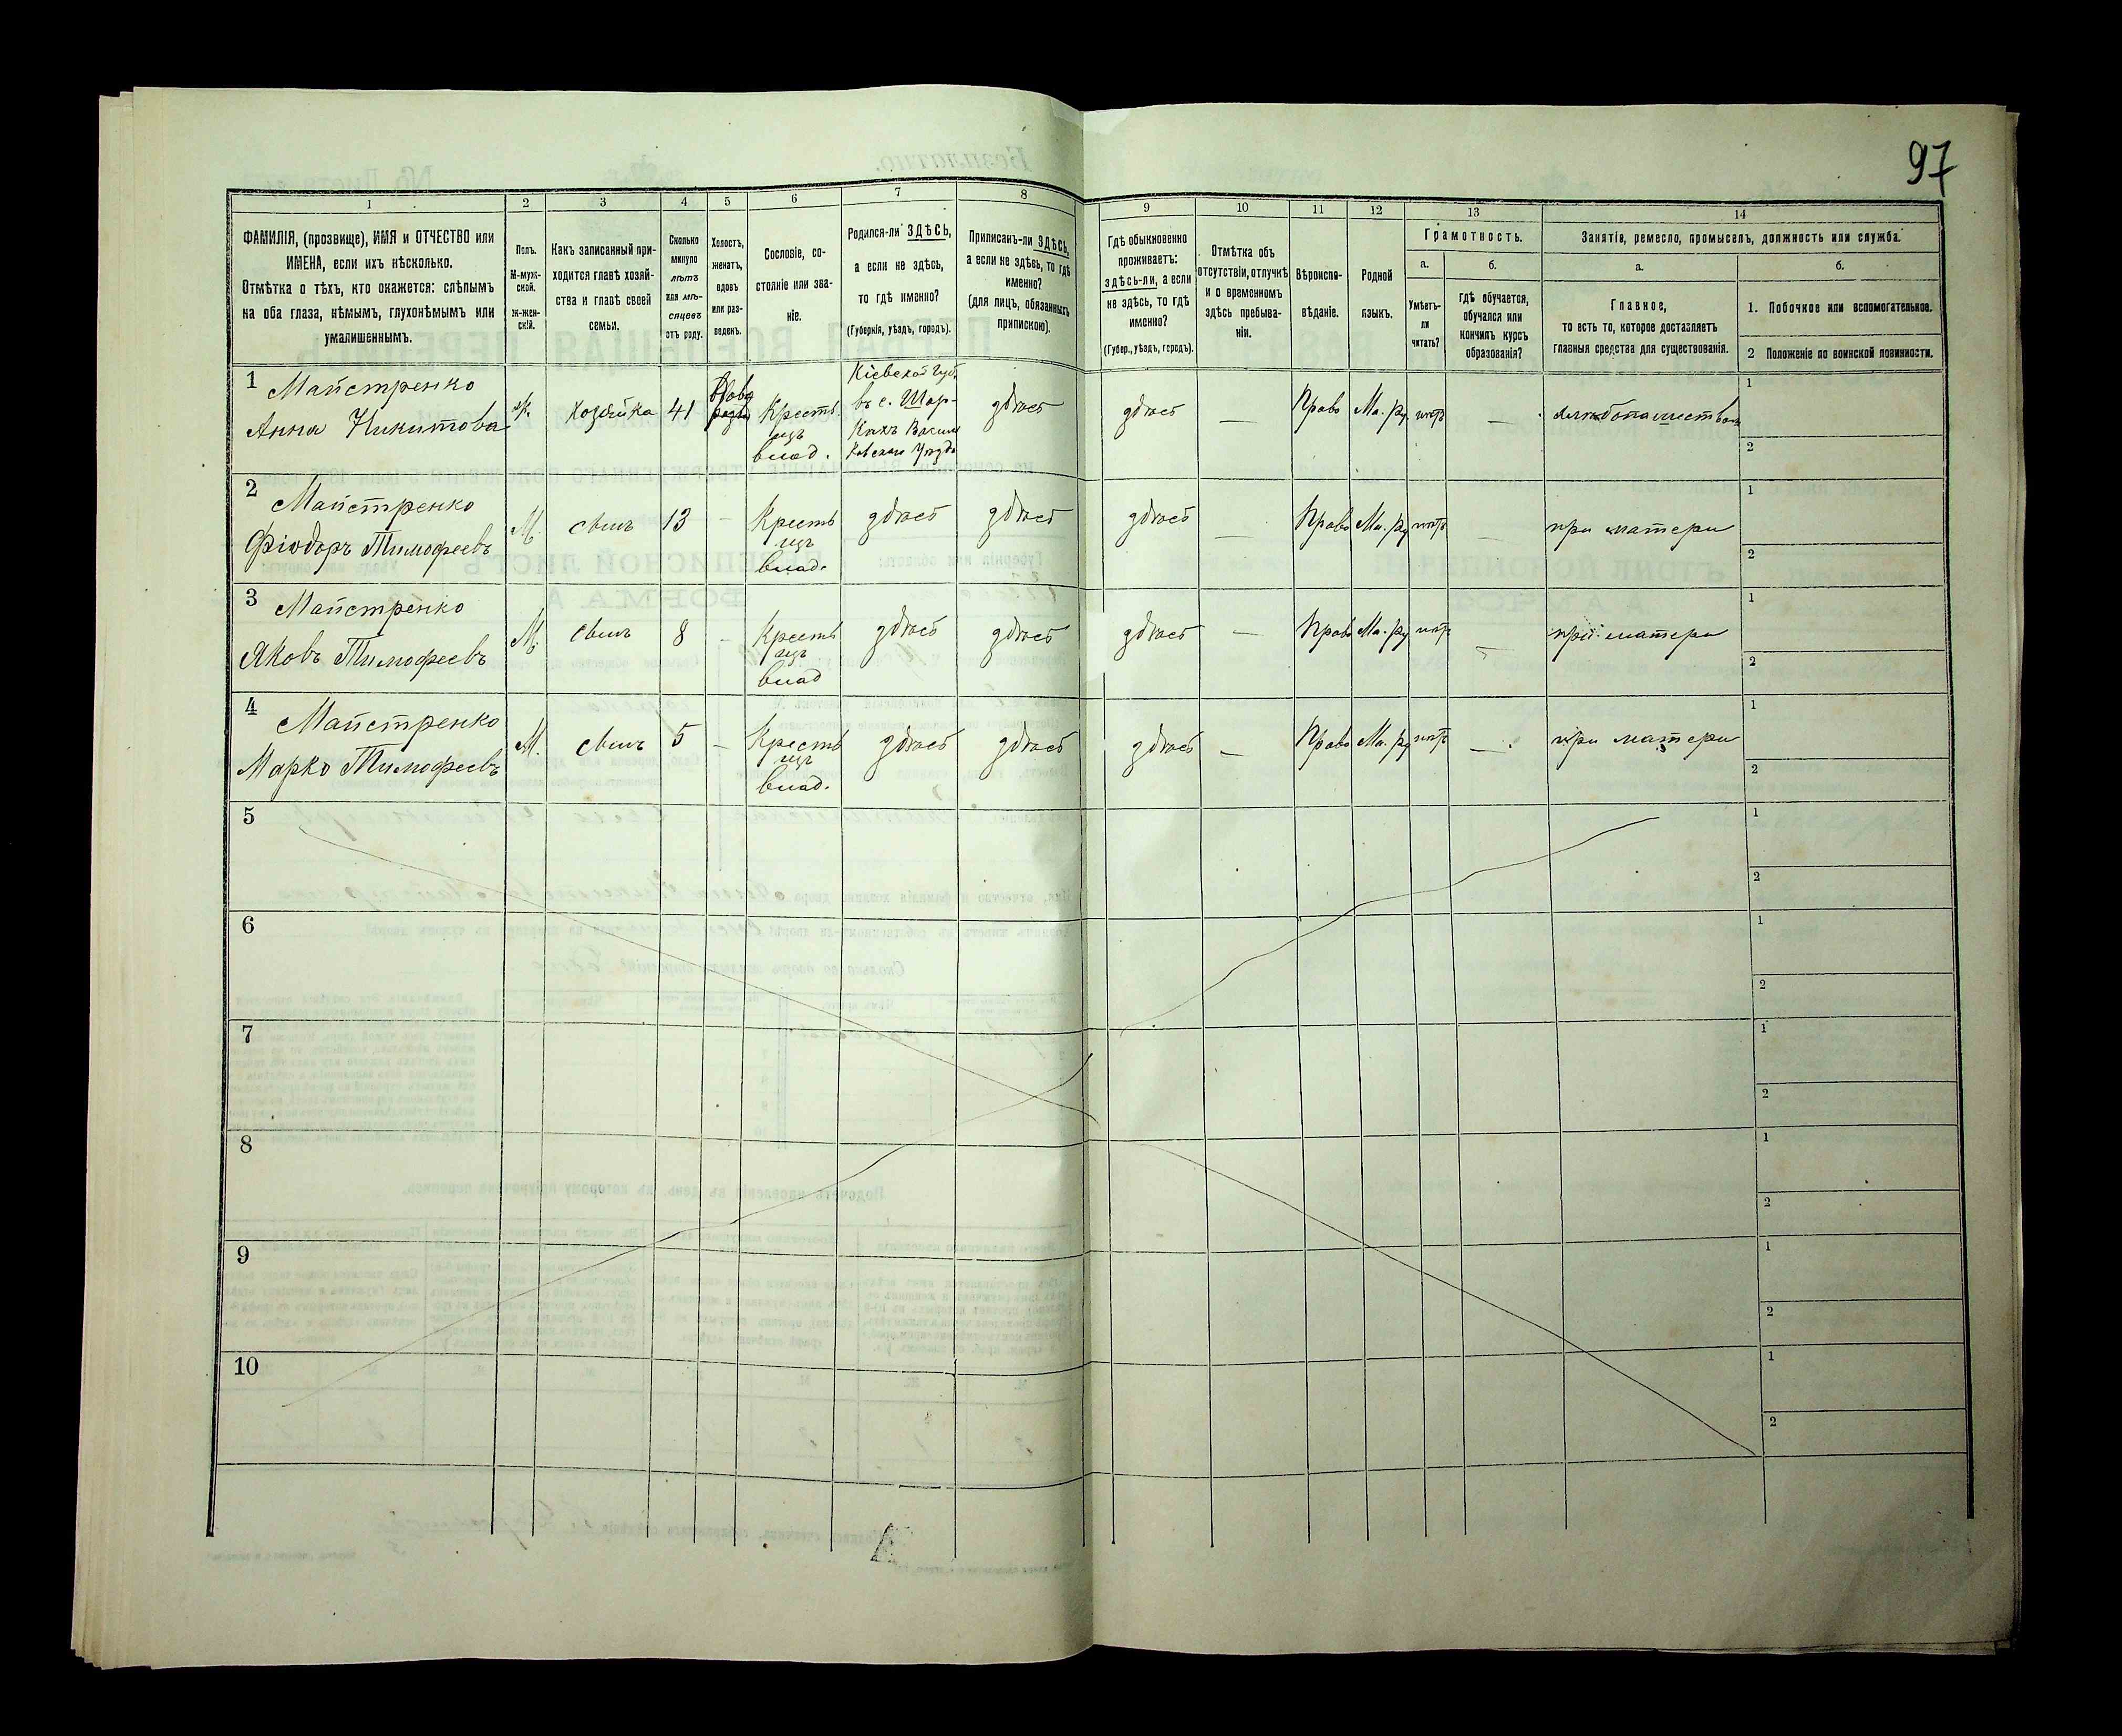 97
1
2
3
4
5
6
7
8
9
10
11
12
13
14
ФАМИЛІЯ, (прозвище), ИМЯ и ОТЧЕСТВО или
ИМЕНА, если ихъ нѣсколько.
Отмѣтка о тѣхъ, кто окажется: слѣпымъ
на оба глаза, нѣмымъ, глухонѣмымъ или
умалишеннымъ.
Полъ.
М-муж-
ской.
Ж-жен-
скій.
Какъ записанный при-
ходится главѣ хозяй-
ства и главѣ своей
семьи.
Сколько
минуло
лѣтъ
или мѣ-
сяцевъ
отъ роду.
Холостъ,
женатъ,
вдовъ
или раз-
веденъ.
Сословіе, со-
стояніе или зва-
ніе.
Родился-ли ЗДѢСЬ,
а если не здѣсь,
то гдѣ именно?
(Губернія, уѣздъ, городъ).
Приписанъ-ли ЗДѢСЬ,
а если не здѣсь, то гдѣ
именно?
(для лицъ, обязанныхъ
припискою).
Гдѣ обыкновенно
проживаетъ:
здѣсь-ли, а если
не здѣсь, то гдѣ
именно?
(Губер., уѣздъ, городъ).
Отмѣтка объ
отсутствіи, отлучкѣ
и о временномъ
здѣсь пребыва-
ніи.
Вѣроиспо-
вѣданіе.
Родной
языкъ.
Грамотность.
а.
Умѣетъ-
ли
читать?
б.
гдѣ обучается,
обучался или
кончилъ курсъ
образованія?
Занятіе, ремесло, промыселъ, должность или служба.
а.
Главное,
то есть то, которое доставляетъ
главныя средства для существованія.
б.
1. Побочное или вспомогательное.
2 Положеніе по воинской повинности.
1 Майстренко
Анна Никитова
ж.
хозяйка
41
Вдова
Крестъ
изъ
влад.
Кіевской губ.
въ с. Шар-
Уѣзда
здѣсь
здѣсь
—
Право
Ма. ру.
нѣтъ
—
хлѣбопашествомъ
1
2
2 Майстренко
Фіодоръ Тимофеевъ
М.
сынъ
13
—
Крестъ
изъ
влад.
здѣсь
здѣсь
здѣсь
—
Право
Ма. ру
нѣтъ
—
при матери
1
2
3 Майстренко
Яковъ Тимофеевъ
М.
сынъ
8
—
Крестъ
изъ
влад
здѣсь
здѣсь
здѣсь
—
Право
Ма. ру
нѣтъ
—
при матери
1
2
4 Майстренко
Марко Тимофеевъ
М.
сынъ
5
—
Крестъ
изъ
влад.
здѣсь
здѣсь
здѣсь
—
Право
Ма. ру
нѣтъ
—
при матери
1
2
5
1
2
6
1
2
7
1
2
8
1
2
9
1
2
10
1
2